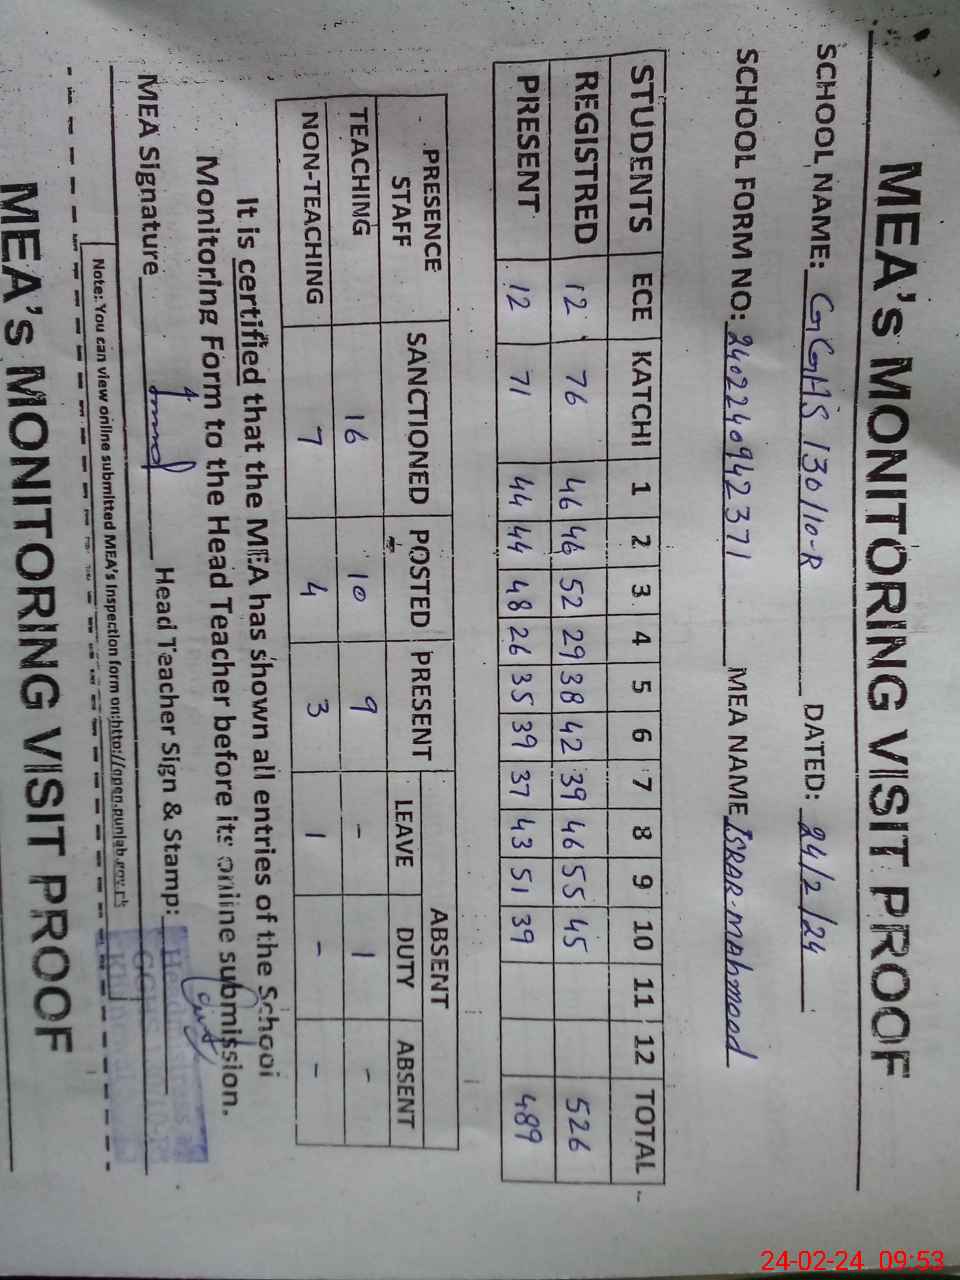 MEA's MONITORING VISIT PROOF
SCHOOL NAME: GGHS 130/10-R DATED: 24/2/24
SCHOOL FORM NO: 2402240942371 MEA NAME ISRAR-MAHMOOD
STUDENTS ECE KATCHI 1 2 3 4 5 6 7 8 9 10 11 12 TOTAL
REGISTRED 12 76 46 46 52 29 38 42 39 46 55 45 526
PRESENT 12 71 44 44 48 26 35 39 37 43 51 39 489
PRESENCE SANCTIONED POSTED PRESENT ABSENT
STAFF LEAVE DUTY ABSENT
TEACHING 16 10 9 - 1 -
NON-TEACHING 7 4 3 1 - -
It is certified that the MEA has shown all entries of the School
Monitoring Form to the Head Teacher before its online submission.
MEA Signature Head Teacher Sign & Stamp:
Note: You can view online submitted MEA's inspection form on:http://open.punjab.gov.pk
MEA's MONITORING VISIT PROOF
24-02-24 09:53